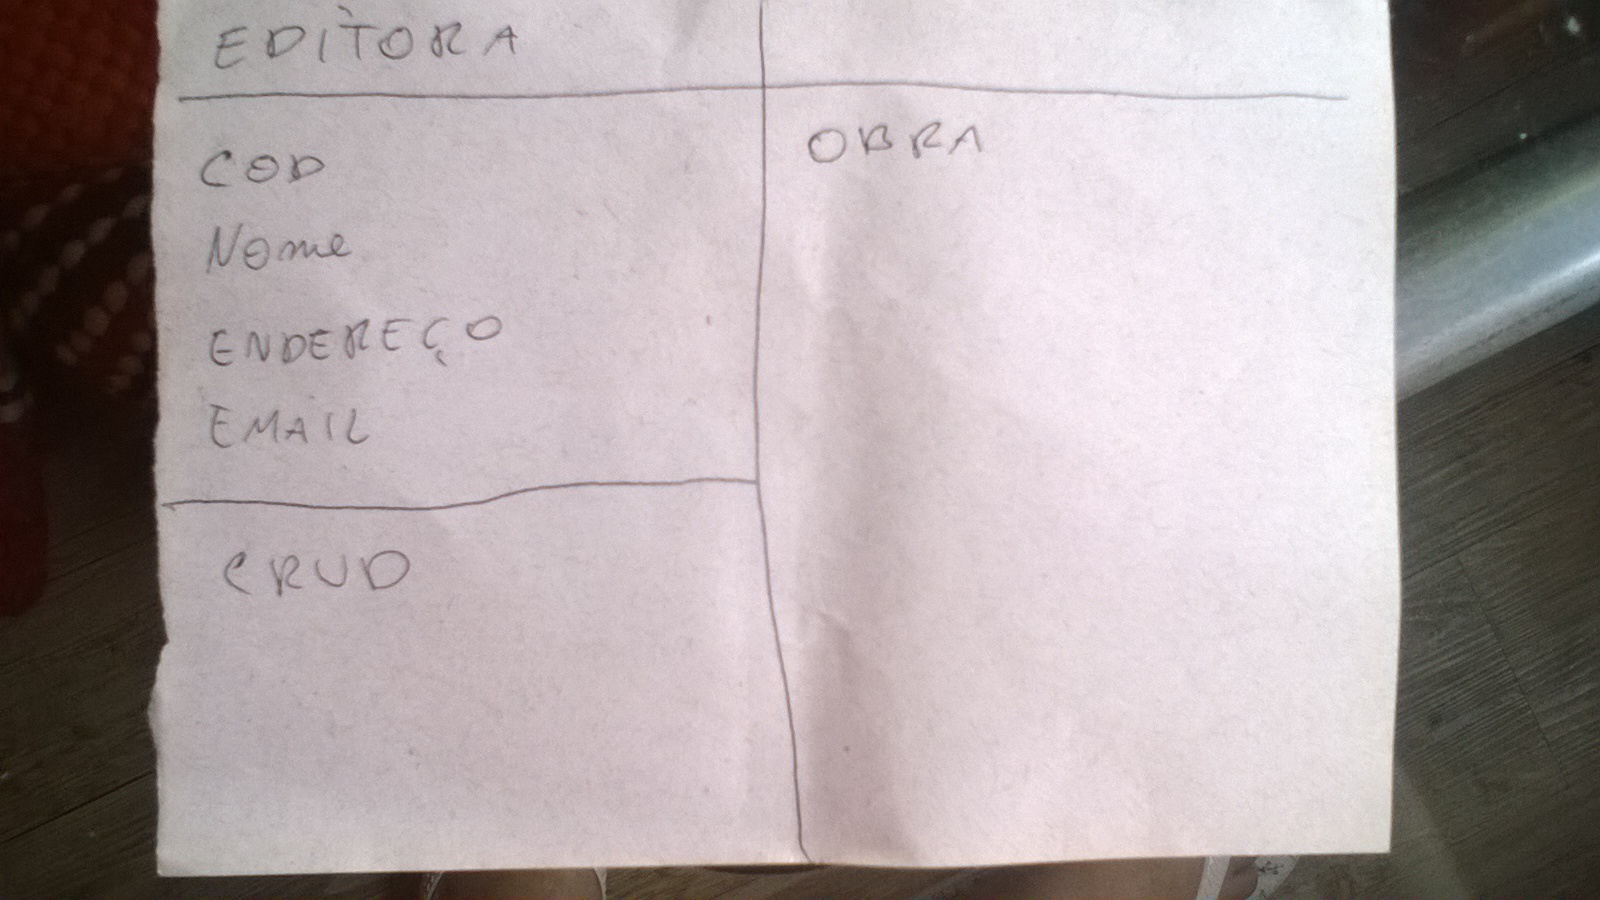 EDITORA
COD
Nome
ENDEREÇO
EMAIL
CRUD
OBRA